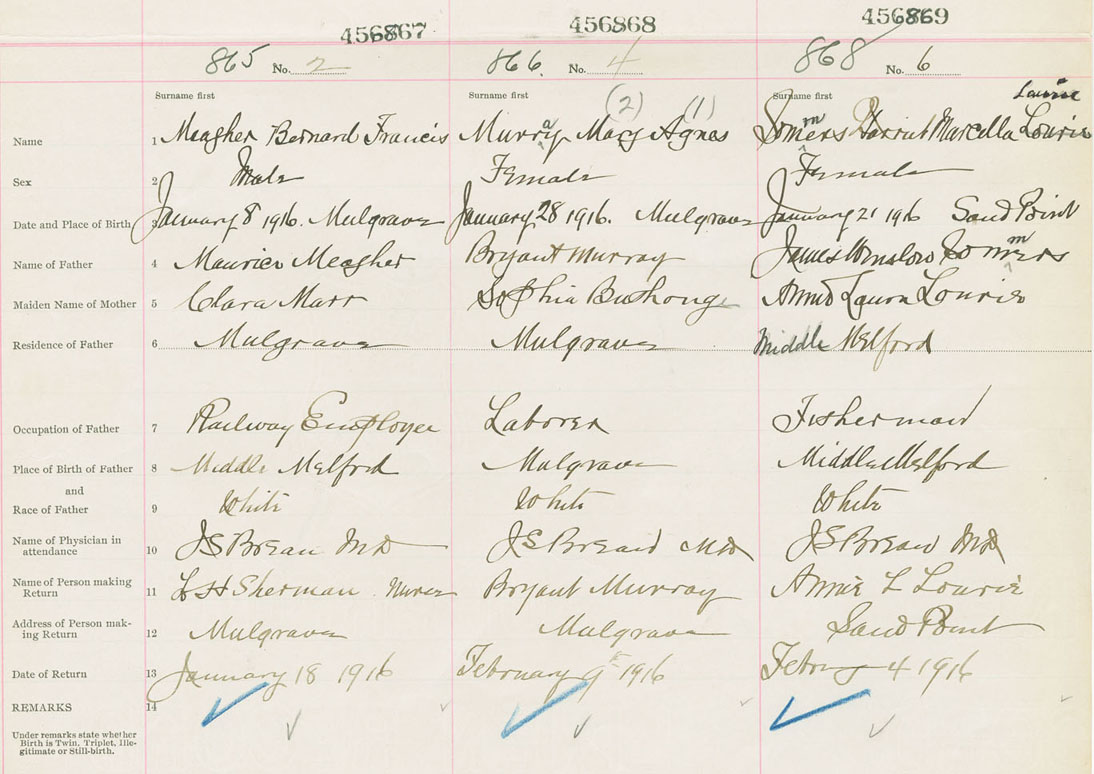 456867 456868 456869
865 No. 2 866. No. 4 868 No. 6
Surname first Surname first Surname first
(2) (1) Laurie
Name 1 Meagher Bernard Francis Murray Mary Agnes Sommers Harriet Marcella Lourie
Sex 2 Male Female Female
Date and Place of Birth 3 January 8 1916. Mulgrave January 28 1916. Mulgrave January 21 1916 Sand Point
Name of Father 4 Maurice Meagher Bryant Murray James Winslow Sommers
Maiden Name of Mother 5 Clara Marr Sophia Bushong Annie Laura Lourie
Residence of Father 6 Mulgrave Mulgrave Middle Melford
Occupation of Father 7 Railway Employee Laborer Fisherman
Place of Birth of Father 8 Middle Melford Mulgrave Middle Melford
and
Race of Father 9 White White White
Name of Physician in
attendance 10 J S Brean MD J S Brean MD J S Brean MD
Name of Person making
Return 11 L H Sherman Nurse Bryant Murray Annie L Lourie
Address of Person mak-
ing Return 12 Mulgrave Mulgrave Sand Point
Date of Return 13 January 18 1916 February 9 1916 4 1916
REMARKS 14
Under remarks state whether
Birth is Twin. Triplet, Ille-
gitimate or Still-birth.